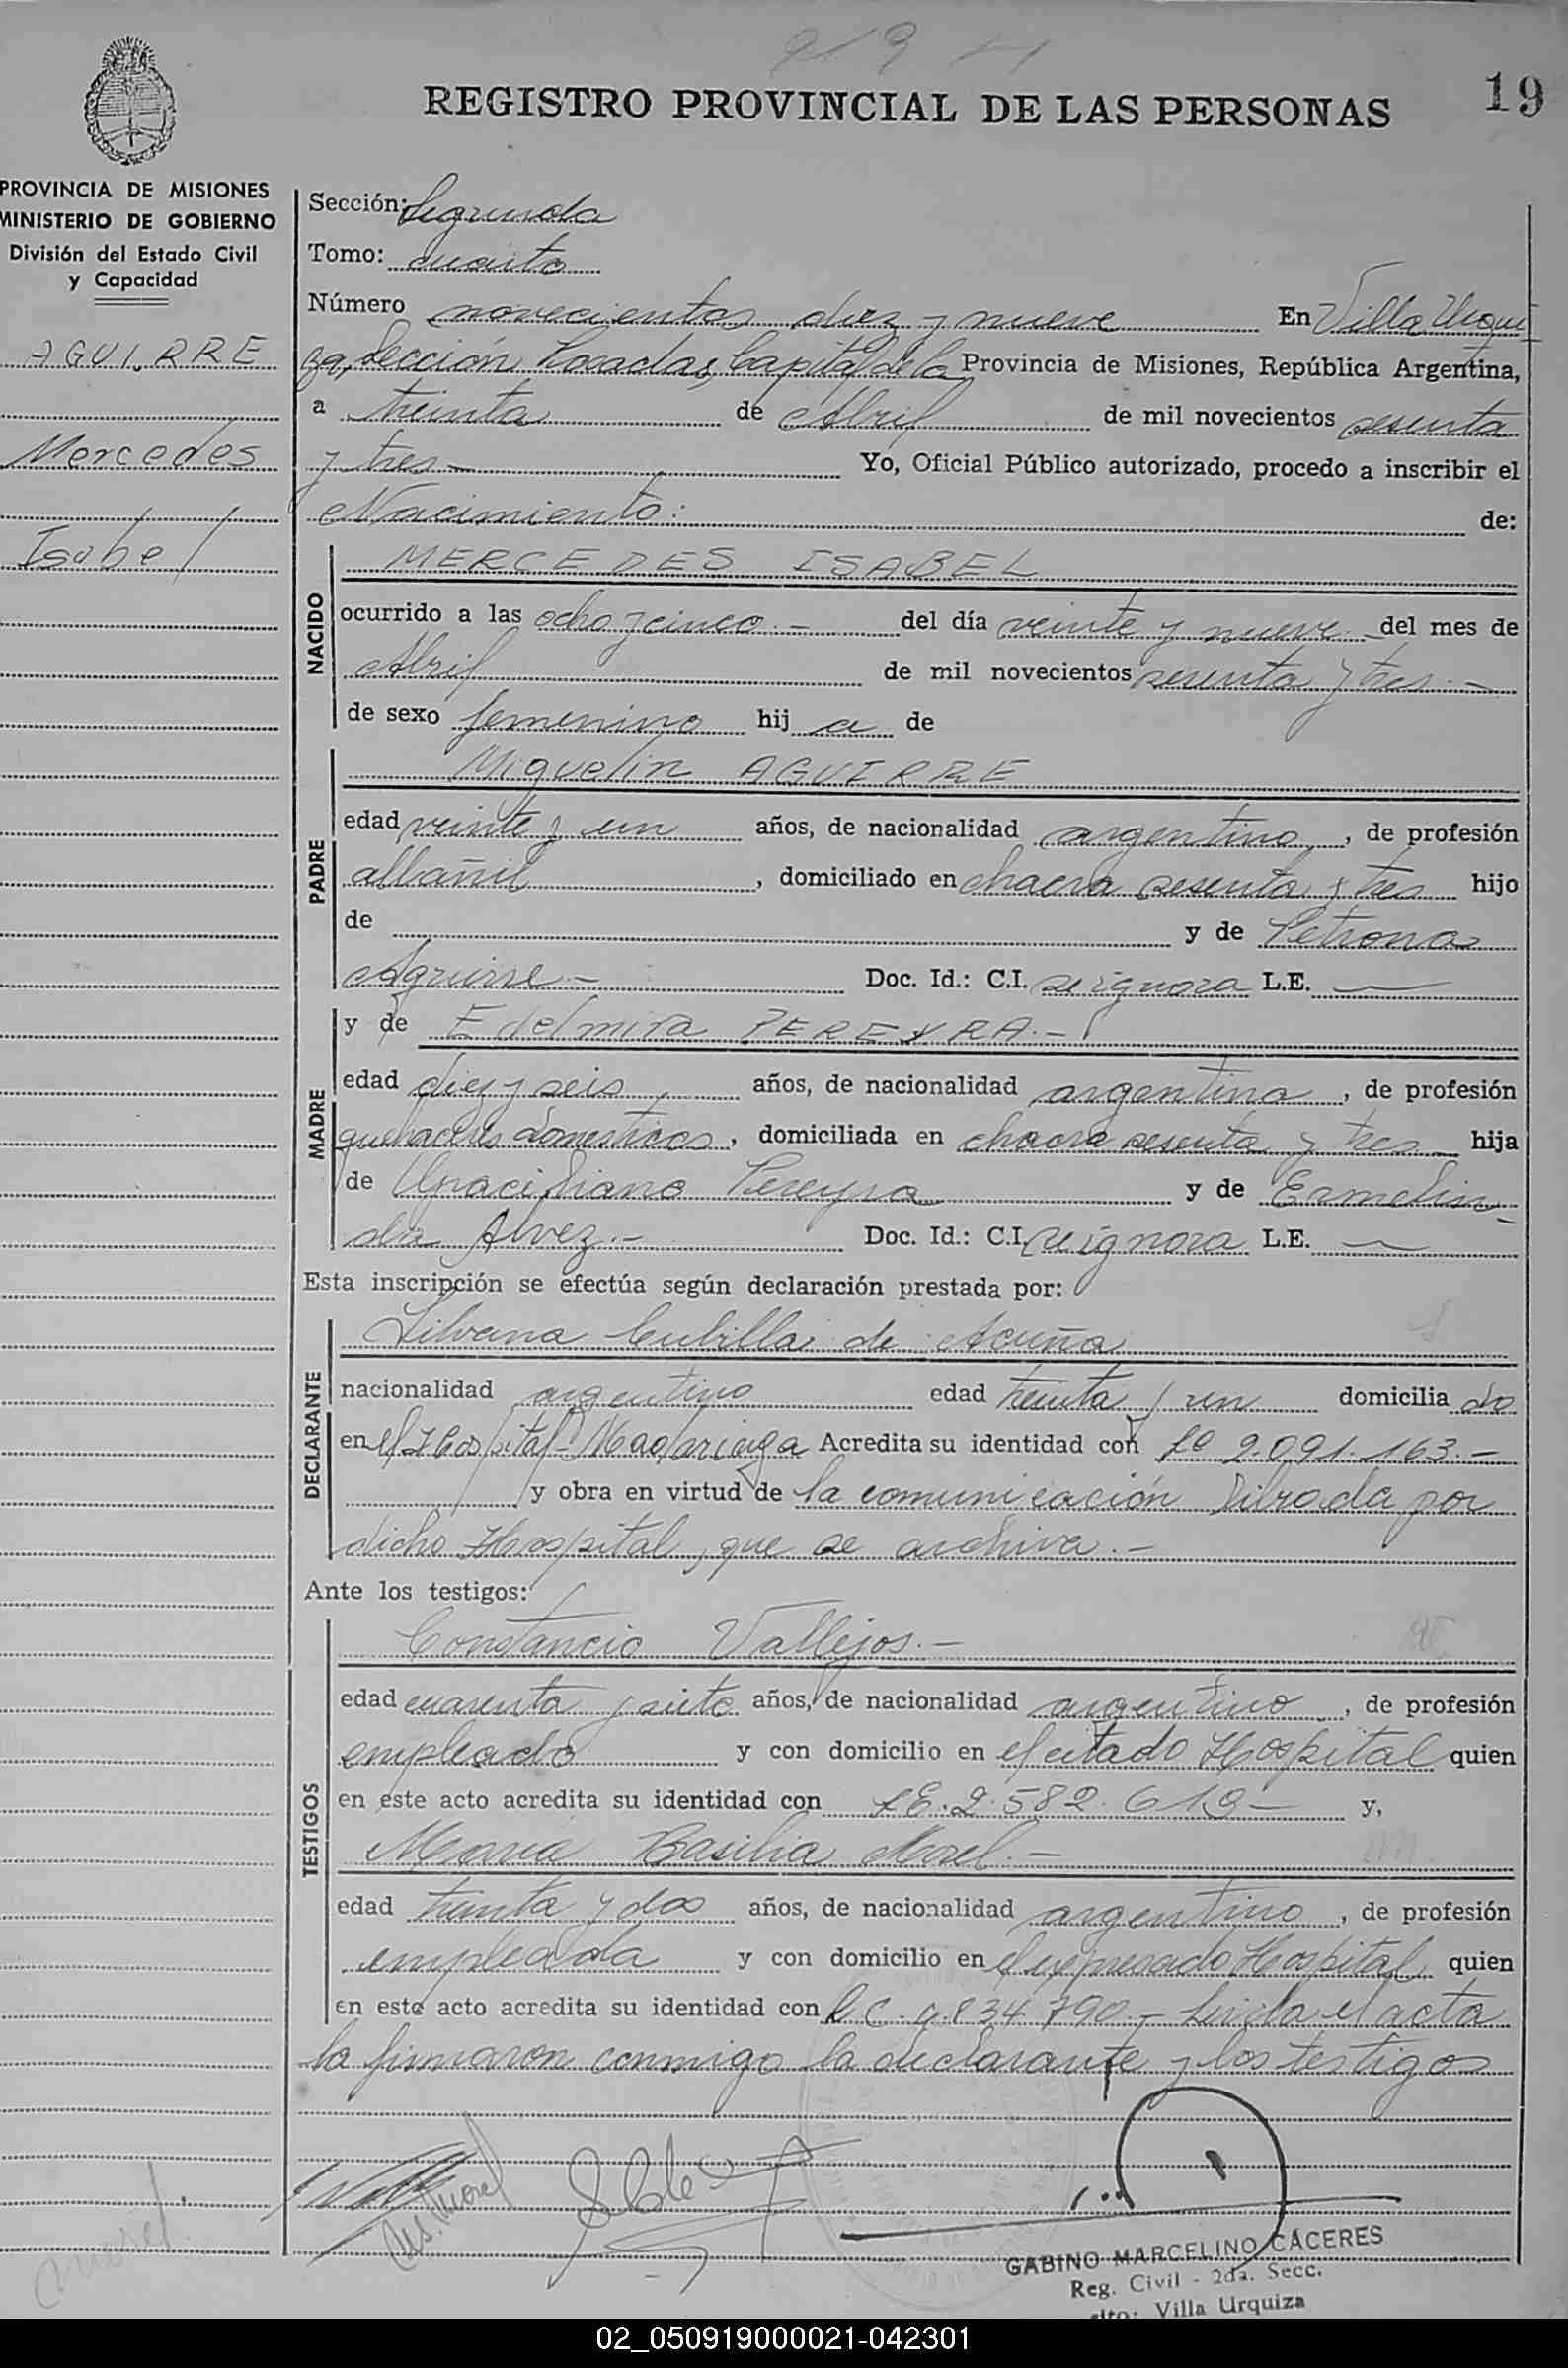 919
REGISTRO PROVINCIAL DE LAS PERSONAS
19
PROVINCIA DE MISIONES
MINISTERIO DE GOBIERNO
División del Estado Civil
y Capacidad
AGUIRRE
Mercedes
Isabel
Sección: Segunda
Tomo: cuarto
Número novecientos diez y nueve En Villa Urqui
za, Sección Posadas, Capital de la Provincia de Misiones, República Argentina,
a treinta de Abril de mil novecientos sesenta
y tres.- Yo, Oficial Público autorizado, procedo a inscribir el
Nacimiento: de:
NACIDO
MERCEDES ISABEL
ocurrido a las ocho y cinco.- del día veinte y nueve del mes de
Abril de mil novecientos sesenta y tres.-
de sexo femenino hij a de
PADRE
Miguelin AGUIRRE
edad veinte y un años, de nacionalidad argentino, de profesión
albañil, domiciliado en chacra sesenta y tres hijo
de y de Petrona
Aguirre.- Doc. Id.: C.I. se ignora L.E. —
MADRE
y de Edelmira PEREYRA.-
edad diez y seis años, de nacionalidad argentina, de profesión
quehaceres domesticos, domiciliada en chacra sesenta y tres hija
de Pereyra y de Ermelin-
da Alvez.- Doc. Id.: C.I. se ignora L.E. —
Esta inscripción se efectúa según declaración prestada por:
DECLARANTE
Silvana Cubilla de Acuña
nacionalidad argentino edad treinta y un domicilia do
en el Hospital Madariaga Acredita su identidad con 2.091.163.-
y obra en virtud de la comunicación librada por
dicho Hospital, que se archiva.-
Ante los testigos:
TESTIGOS
Constancio Vallejos.-
edad cuarenta y siete años, de nacionalidad argentino, de profesión
empleado y con domicilio en el citado Hospital quien
en este acto acredita su identidad con LE. 2.582.619- y,
Maria Basilia Morel.-
edad treinta y dos años, de nacionalidad argentino, de profesión
empleada y con domicilio en el expresado Hospital quien
en este acto acredita su identidad con L.C. 9.834.790.- Leida el acta
la firmaron conmigo la declarante y los testigos
Morel
GABINO MARCELINO CACERES
Reg. Civil - 2da. Secc.
Villa Urquiza
02_050919000021-042301